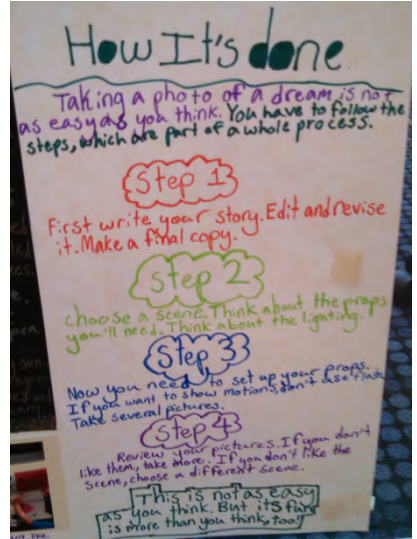 How It's done.
Taking a photo of a dream is not
as easy as you think. You have to follow the
steps, which are part of a whole process.
Step 1
First write your story. Edit and revise
it. Make a final copy.
Step 2
choose a scene. Think about the props
you'll need. Think about the lighting.
Step 3
Now you need to set up your props.
If you want to show motion, don't use flash.
Take several pictures.
Step 4
Review your pictures. If you don't
like them, take more. If you don't like the
scene, choose a different scene.
This is not as easy
as you think. But it's fun
is more than you think, too!